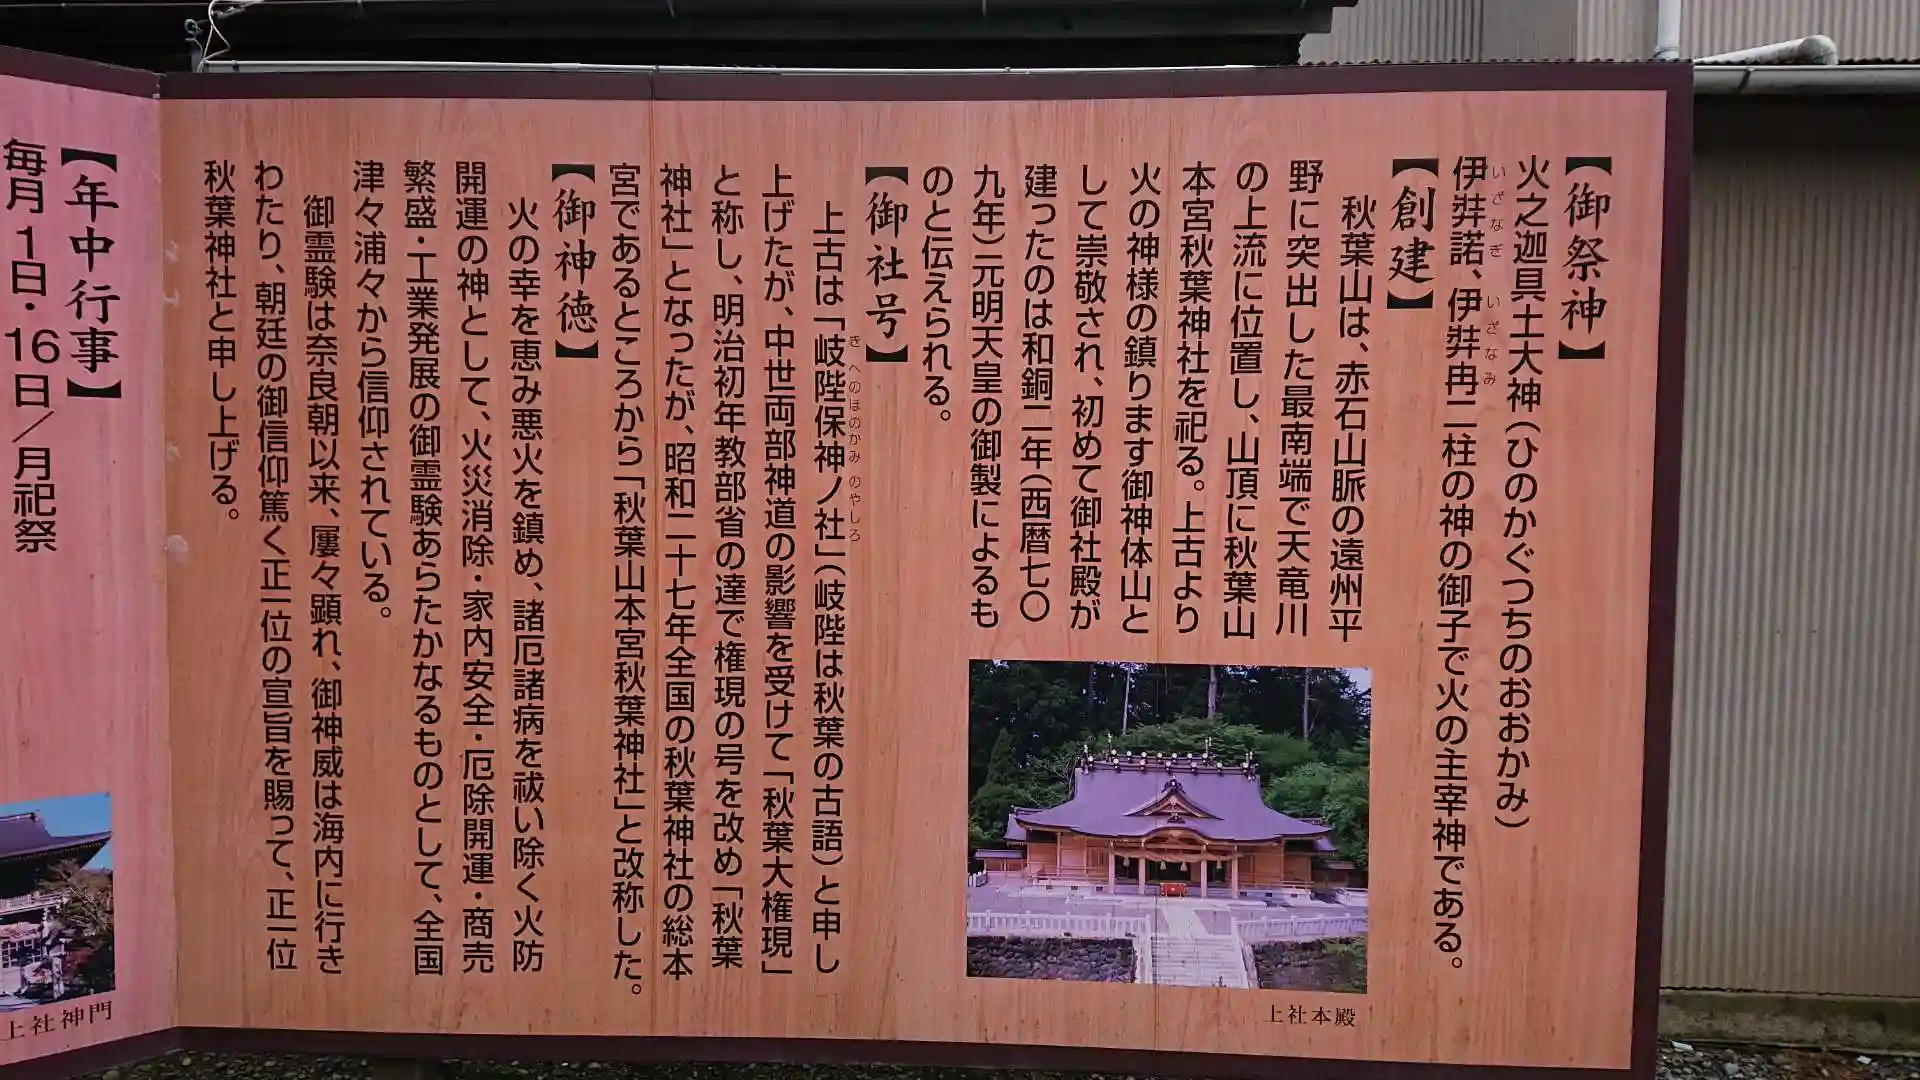 【御祭神】
火之迦具土大神(ひのかぐつちのおおかみ)
伊弉諾、伊弉冉二柱の神の御子で火の主宰神である。
いざなぎ いざなみ
【創建】
秋葉山は、赤石山脈の遠州平
野に突出した最南端で天竜川
の上流に位置し、山頂に秋葉山
本宮秋葉神社を祀る。上古より
火の神様の鎮ります御神体山と
して崇敬され、初めて御社殿が
建ったのは和銅二年(西暦七〇
九年)元明天皇の御製によるも
のと伝えられる。
【御社号】
上古は「岐陛保神ノ社」(岐陛は秋葉の古語)と申し
きへのほのかみ のやしろ
上げたが、中世両部神道の影響を受けて「秋葉大権現」
と称し、明治初年教部省の達で権現の号を改め「秋葉
神社」となったが、昭和二十七年全国の秋葉神社の総本
宮であるところから「秋葉山本宮秋葉神社」と改称した。
【御神徳】
火の幸を恵み悪火を鎮め、諸厄諸病を祓い除く火防
開運の神として、火災消除・家内安全・厄除開運・商売
繁盛・工業発展の御霊験あらたかなるものとして、全国
津々浦々から信仰されている。
御霊験は奈良朝以来、屢々顕れ、御神威は海内に行き
わたり、朝廷の御信仰篤く正一位の宣旨を賜って、正一位
秋葉神社と申し上げる。
上社本殿
【年中行事】
毎月1日・16日/月祀祭
上社神門